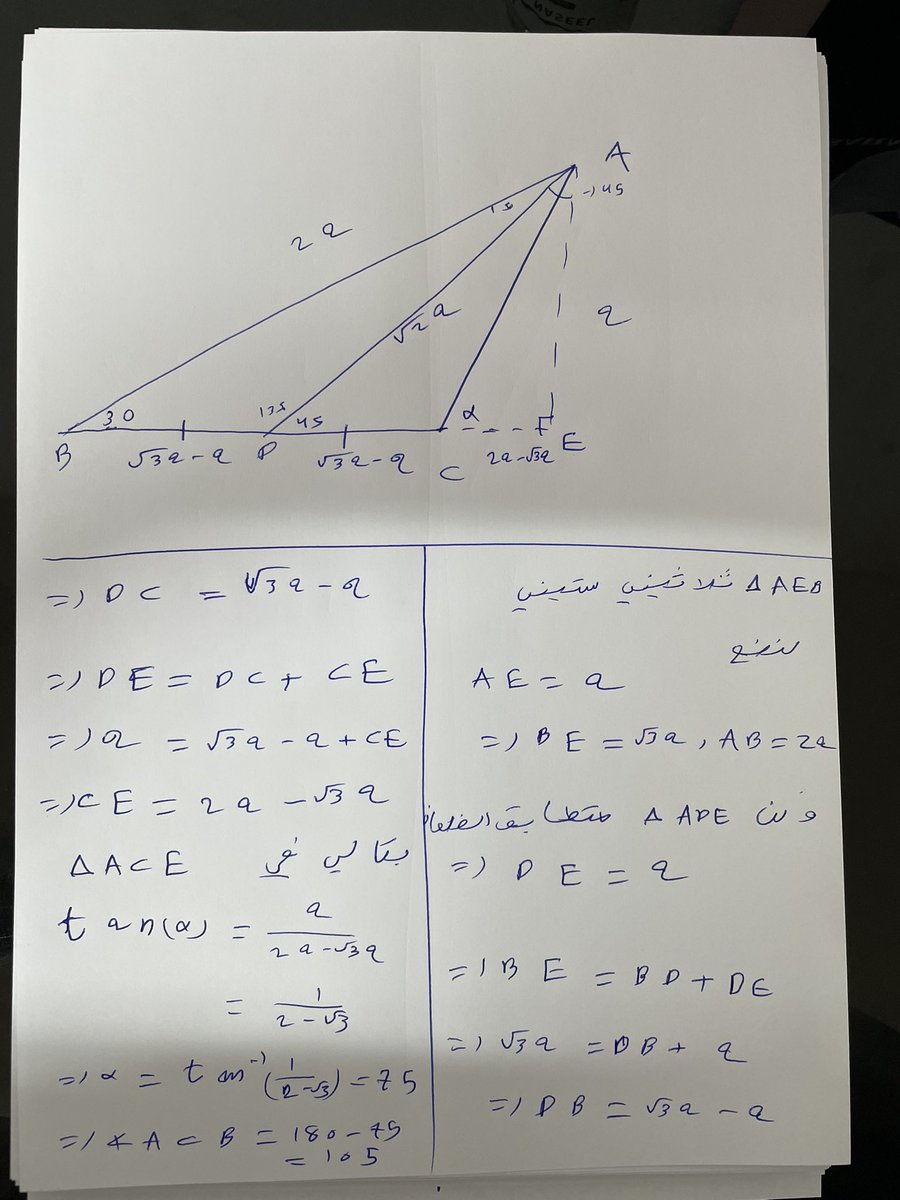 NASEEL
A
→ 45
15
2a
√2 a
a
30
135
45
α
B
√3a - a
D
√3a - a
C
2a - √3a
E
Δ AEB ثلاثيني ستيني
لنضع
AE = a
=) BE = √3a , AB = 2a
Δ ADE متطابق الضلعان
=) DE = a
=) BE = BD + DE
=) √3a = DB + a
=) DB = √3a - a
=) DC = √3a - a
=) DE = DC + CE
=) a = √3a - a + CE
=) CE = 2a - √3a
بتالي في Δ ACE
tan(α) = a / 2a - √3a
= 1 / 2 - √3
=) α = tan⁻¹(1 / 2 - √3) = 75
=) ∡ ACB = 180 - 75
= 105